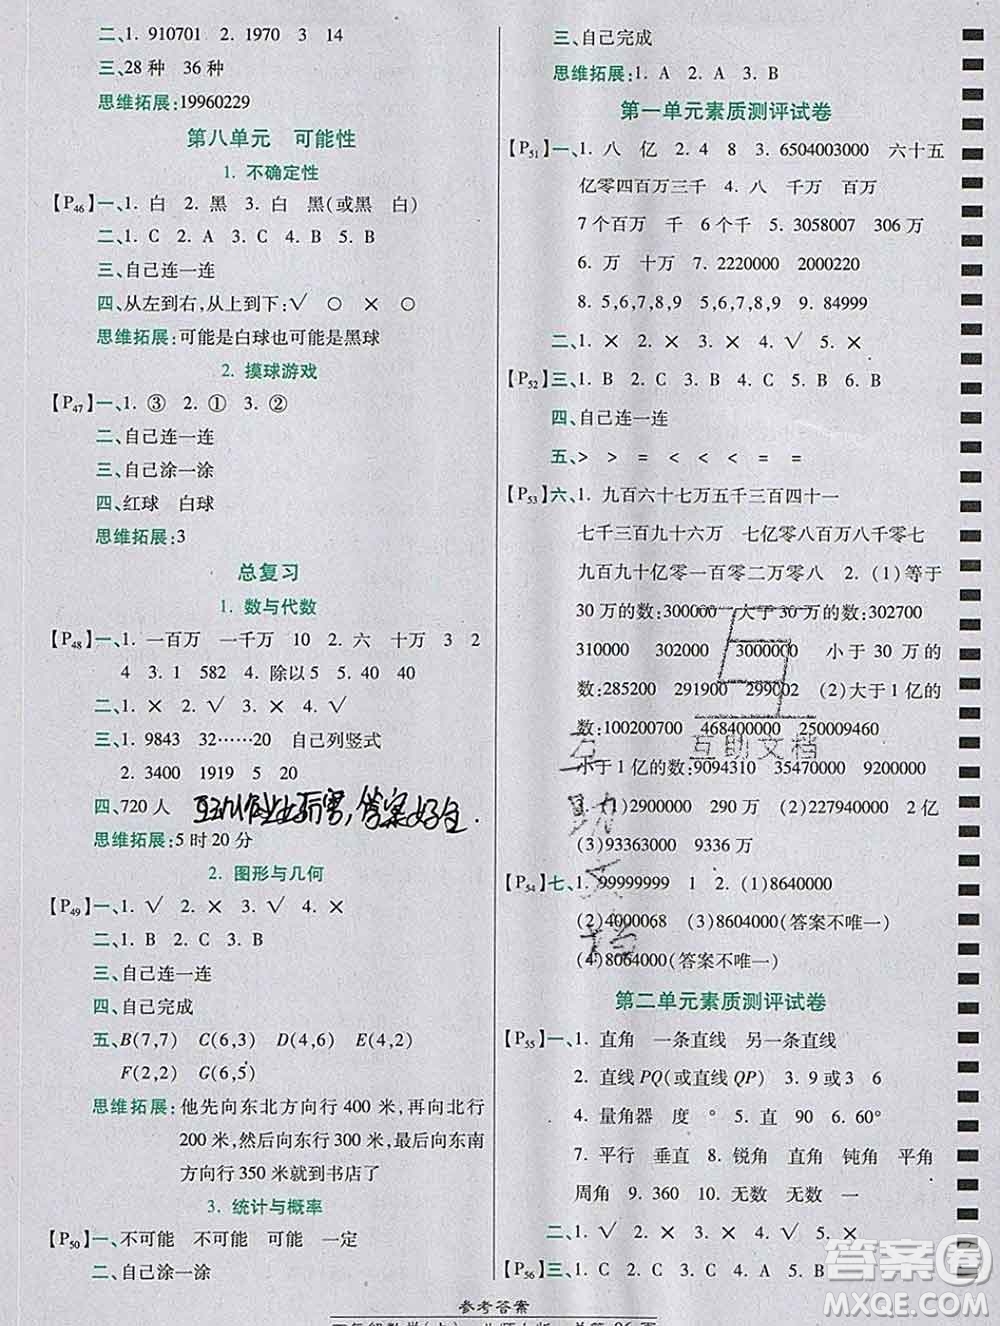 二、1. 910701 2. 1970 3 14
三、28 种 36 种
思维拓展:19960229
第八单元 可能性
1. 不确定性
【P46】一、1. 白 2. 黑 3. 白 黑(或黑 白)
二、1. C 2. A 3. C 4. B 5. B
三、自己连一连
四、从左到右,从上到下:√ ○ × ○
思维拓展:可能是白球也可能是黑球
2. 摸球游戏
【P47】一、1. ③ 2. ① 3. ②
二、自己连一连
三、自己涂一涂
四、红球 白球
思维拓展:3
总复习
1. 数与代数
【P48】一、1. 一百万 一千万 10 2. 六 十万 3 2
4 3. 1 582 4. 除以 5 5. 40 40
二、1. × 2. √ 3. √ 4. ×
三、1. 9843 32……20 自己列竖式
2. 3400 1919 5 20
四、720 人
互动作业厉害,答案好全.
思维拓展:5 时 20 分
2. 图形与几何
【P49】一、1. √ 2. × 3. √ 4. ×
二、1. B 2. B 3. C
三、自己连一连
四、自己完成
五、B(7,7) C(6,3) D(4,6) E(4,4)
F(2,2) G(6,5)
思维拓展:他先向东北方向行 400 米,再向北行
200 米,然后向东行 300 米,最后向东南
方向行 350 米就到书店了
3. 统计与概率
【P50】一、不可能 不可能 可能 一定
二、自己涂一涂
三、自己完成
思维拓展:1. A 2. A 3. B
第一单元素质测评试卷
【P51】一、1. 八 亿 2. 4 8 3. 6504003000 六十五
亿零四百万三千 4. 八 千万 百万
7 个百万 千 6 个千 5. 3058007 306 万
6. 万 十万 7. 2220000 2000220
8. 5,6,7,8,9 5,6,7,8,9 9. 84999
二、1. × 2. × 3. × 4. √ 5. ×
【P52】三、1. B 2. C 3. A 4. B 5. C 6. B 7. A
四、自己连一连
五、> > = < < < = =
【P53】六、1. 九百六十七万五千三百四十一
七千三百九十六万 七亿零八百万八千零七
九百九十亿零一百零二万零八 2. (1)等于
30 万的数:300000 大于 30 万的数:302700
310000 320000 3000000 小于 30 万的
数:285200 291900 299002 (2)大于 1 亿的
数:100200700 468400000 250009460
小于 1 亿的数:9094310 37700000 9200000
3. (1)4032000 (2)227940000 2 亿
(3)93363000 9336 万
【P54】七、1. 99999999 1 2. (1)8640000
(2)4000068 (3)8604000(答案不唯一)
(4)8064000(答案不唯一)
第二单元素质测评试卷
【P55】一、1. 直角 一条直线 另一条直线
2. 直线 PQ(或直线 QP) 3. 9 或 3 6
4. 量角器 度 ° 5. 直 90 6. 60°
7. 平行 垂直 8. 锐角 直角 钝角 平角
周角 9. 360 10. 无数 无数 一
二、1. √ 2. × 3. × 4. √ 5. ×
【P56】三、1. C 2. C 3. B
互助文档
互助文档
答案圈
MXQE.COM
参考答案